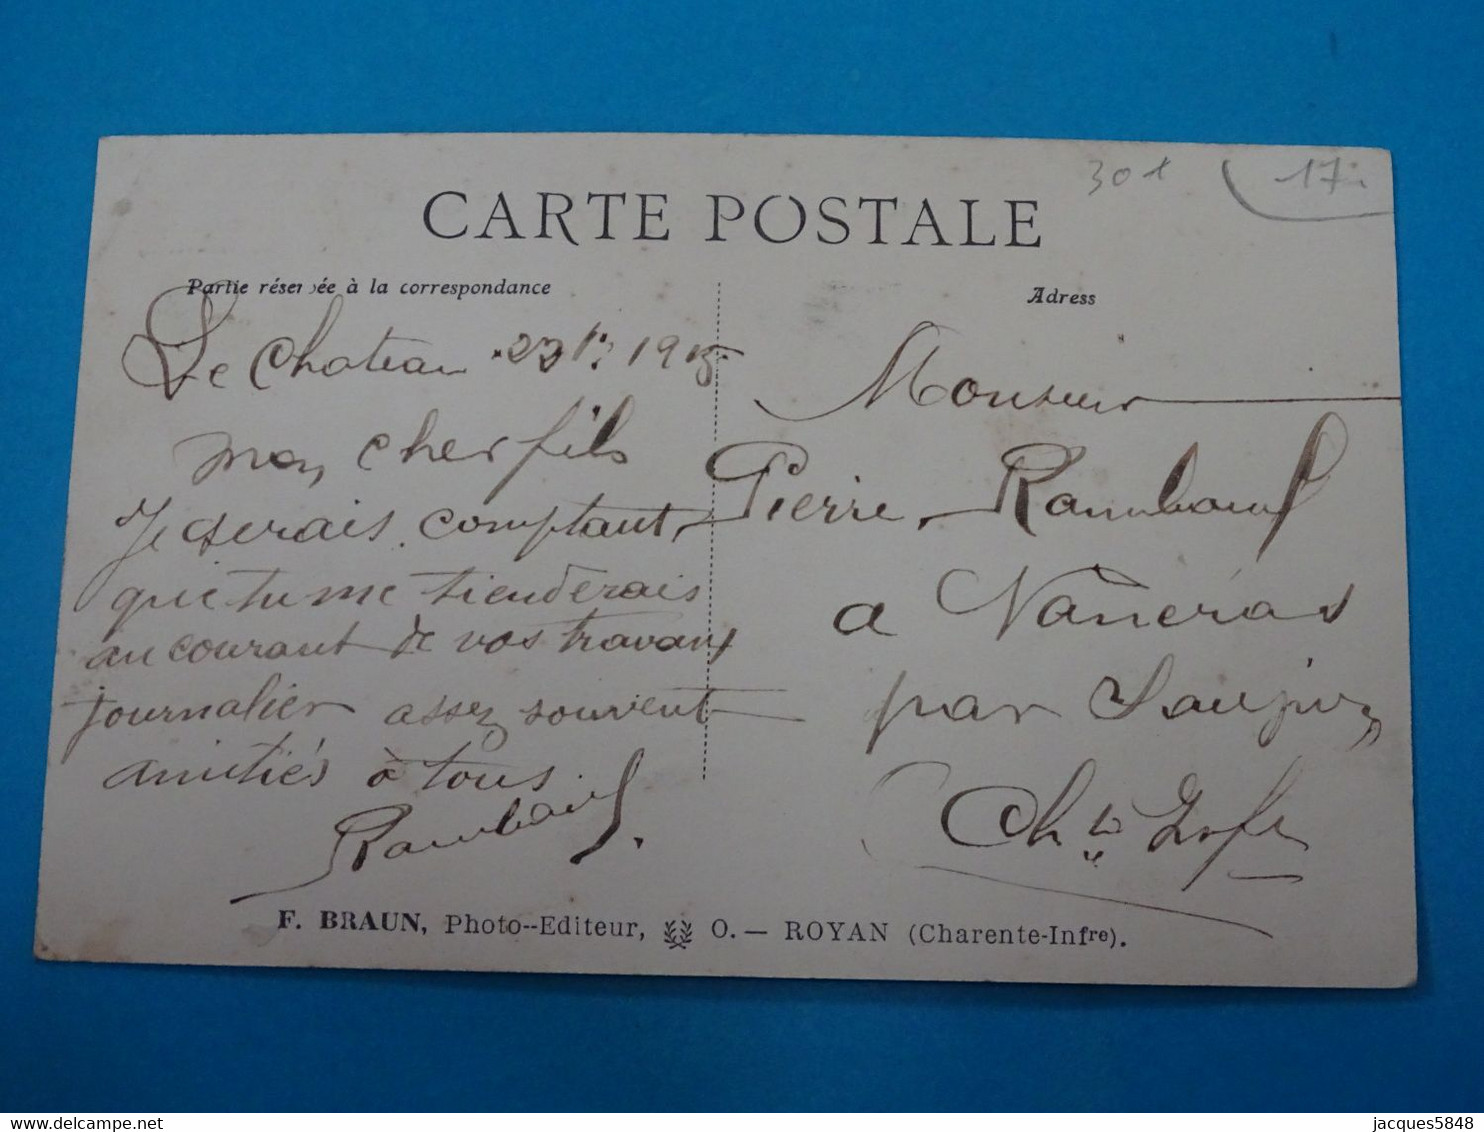 301 17
CARTE POSTALE
Partie réservée à la correspondance
Le Chateau 1915
mon cher fils
Je serais comptant
que tu me tienderais
au courant de vos travaux
journalier assez souvent
amitiés à tous
Rambaud
Adress
Monsieur
Pierre Rambaud
a Nancras
par Saujon
Chte Infre
F. BRAUN, Photo--Editeur, O. — ROYAN (Charente-Infre).
jacques5848